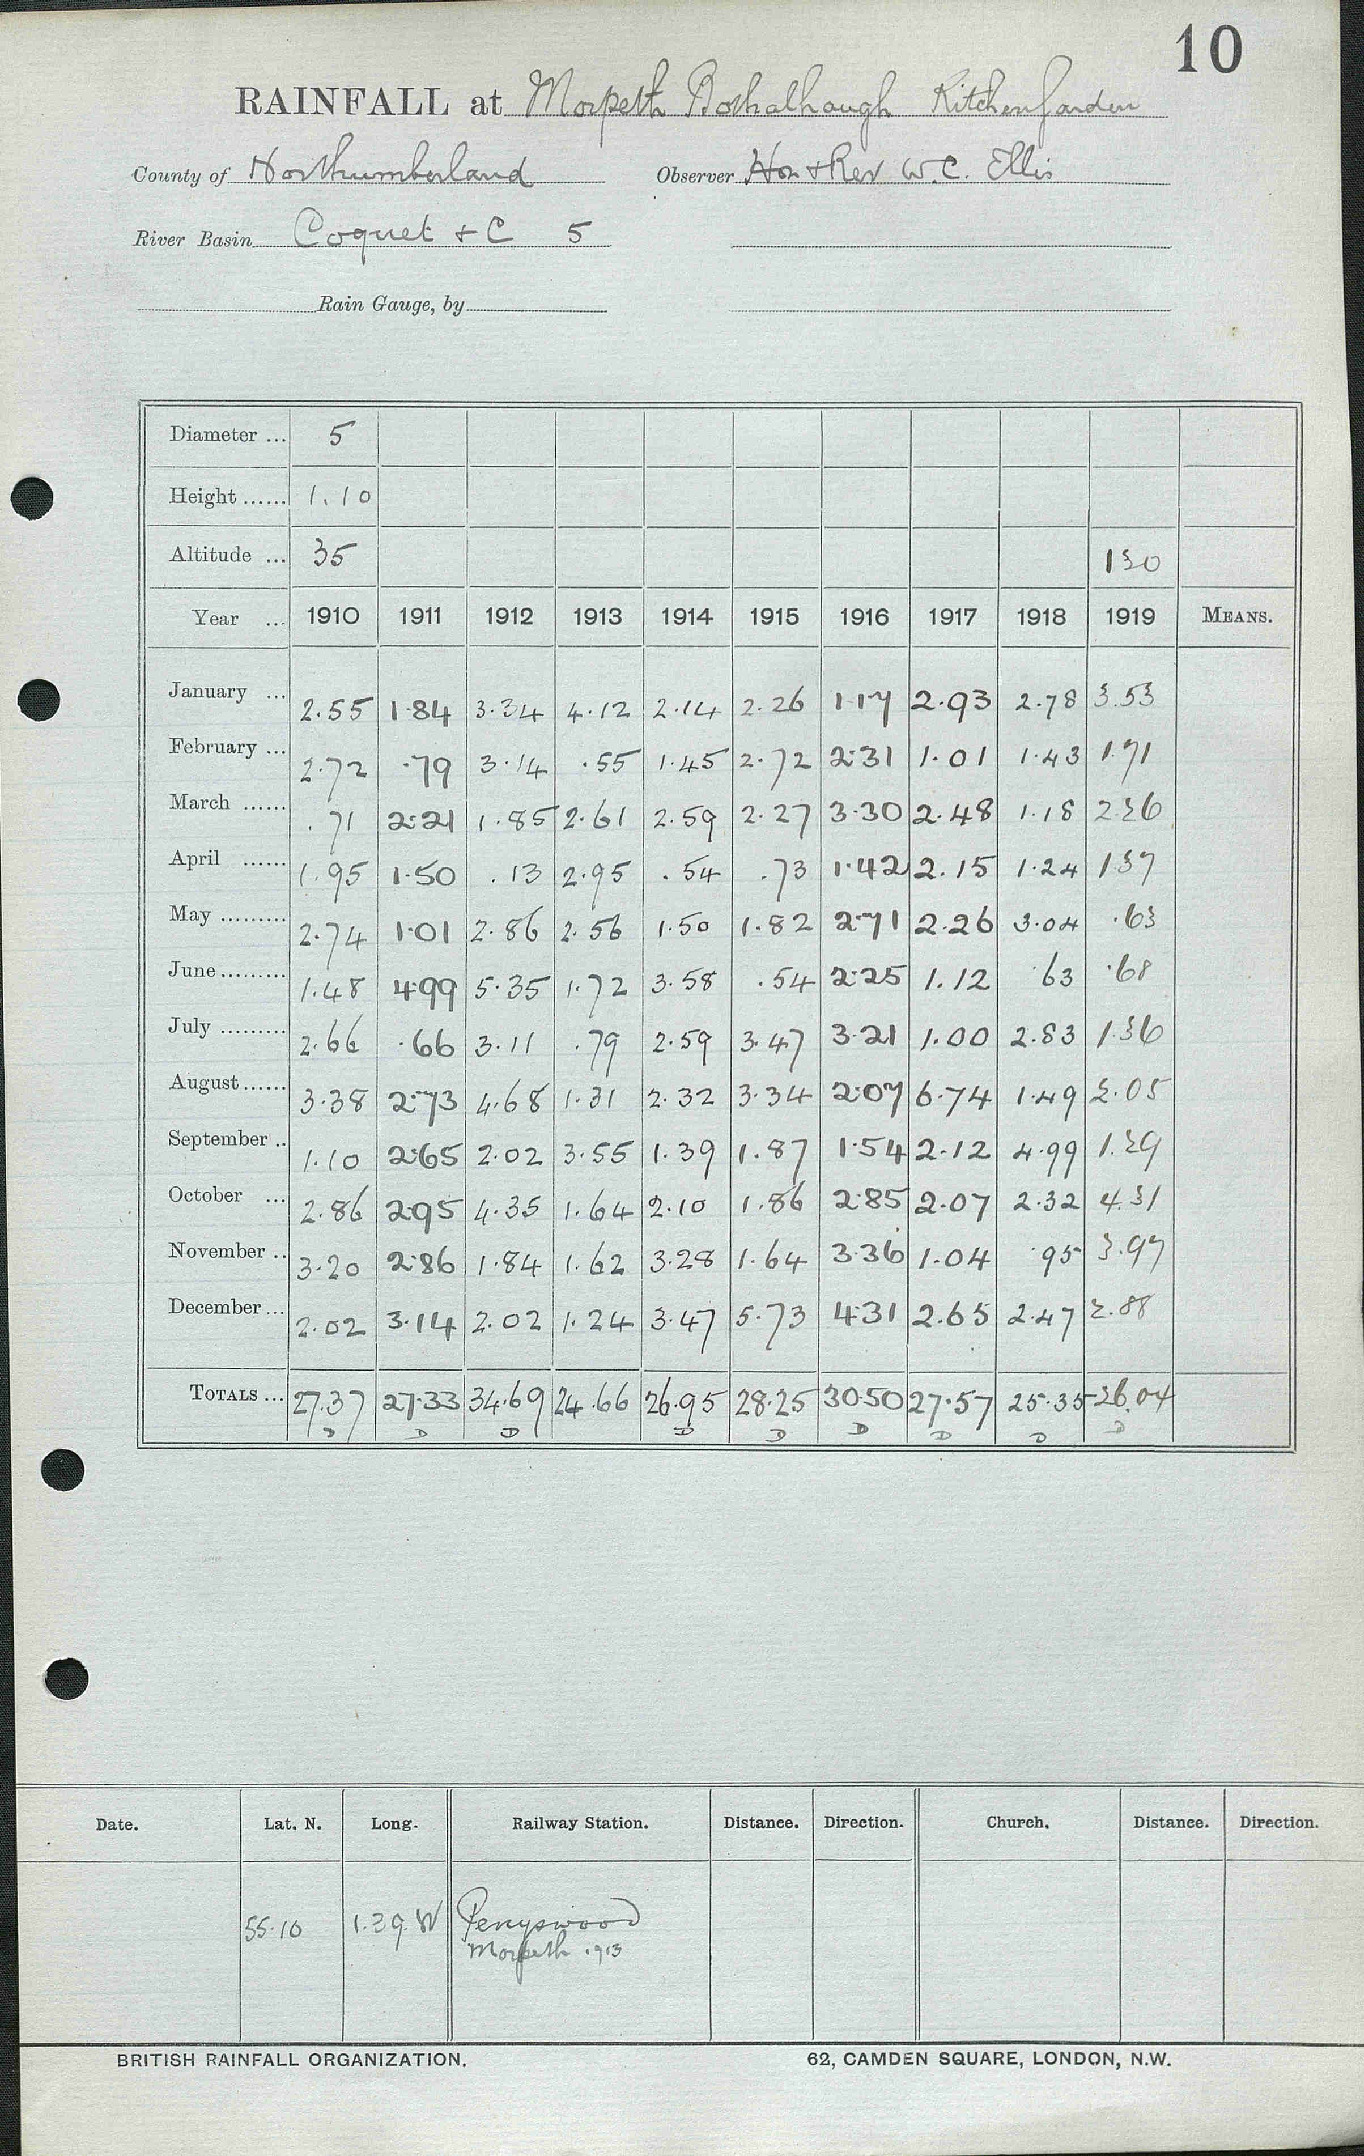 10
RAINFALL at Morpeth Bothalhaugh Kitchen Garden
County of Northumberland Observer Hon & Rev W.C. Ellis
River Basin Coquet & C 5
Rain Gauge, by
Diameter ... 5
Height ...... 1.10
Altitude ... 35 130
Year ... 1910 1911 1912 1913 1914 1915 1916 1917 1918 1919 MEANS.
January ... 2.55 1.84 3.34 4.12 2.14 2.26 1.17 2.93 2.78 3.53
February ... 2.72 .79 3.14 .55 1.45 2.72 2.31 1.01 1.43 1.71
March ...... .71 2.21 1.85 2.61 2.59 2.27 3.30 2.48 1.18 2.26
April ...... 1.95 1.50 .13 2.95 .54 .73 1.42 2.15 1.24 1.37
May ......... 2.74 1.01 2.86 2.56 1.50 1.82 2.71 2.26 3.04 .63
June ......... 1.48 4.99 5.35 1.72 3.58 .54 2.25 1.12 .63 .68
July ......... 2.66 .66 3.11 .79 2.59 3.47 3.21 1.00 2.83 1.36
August ...... 3.38 2.73 4.68 1.31 2.32 3.34 2.07 6.74 1.49 2.05
September .. 1.10 2.65 2.02 3.55 1.39 1.87 1.54 2.12 4.99 1.29
October ... 2.86 2.95 4.35 1.64 2.10 1.86 2.85 2.07 2.32 4.31
November .. 3.20 2.86 1.84 1.62 3.28 1.64 3.36 1.04 .95 3.97
December ... 2.02 3.14 2.02 1.24 3.47 5.73 4.31 2.65 2.47 2.88
TOTALS ... 27.37 27.33 34.69 24.66 26.95 28.25 30.50 27.57 25.35 26.04
D D D D D D D D D
Date. Lat. N. Long. Railway Station. Distance. Direction. Church. Distance. Direction.
55.10 1.39 W Pegswood
Morpeth 1913
BRITISH RAINFALL ORGANIZATION. 62, CAMDEN SQUARE, LONDON, N.W.